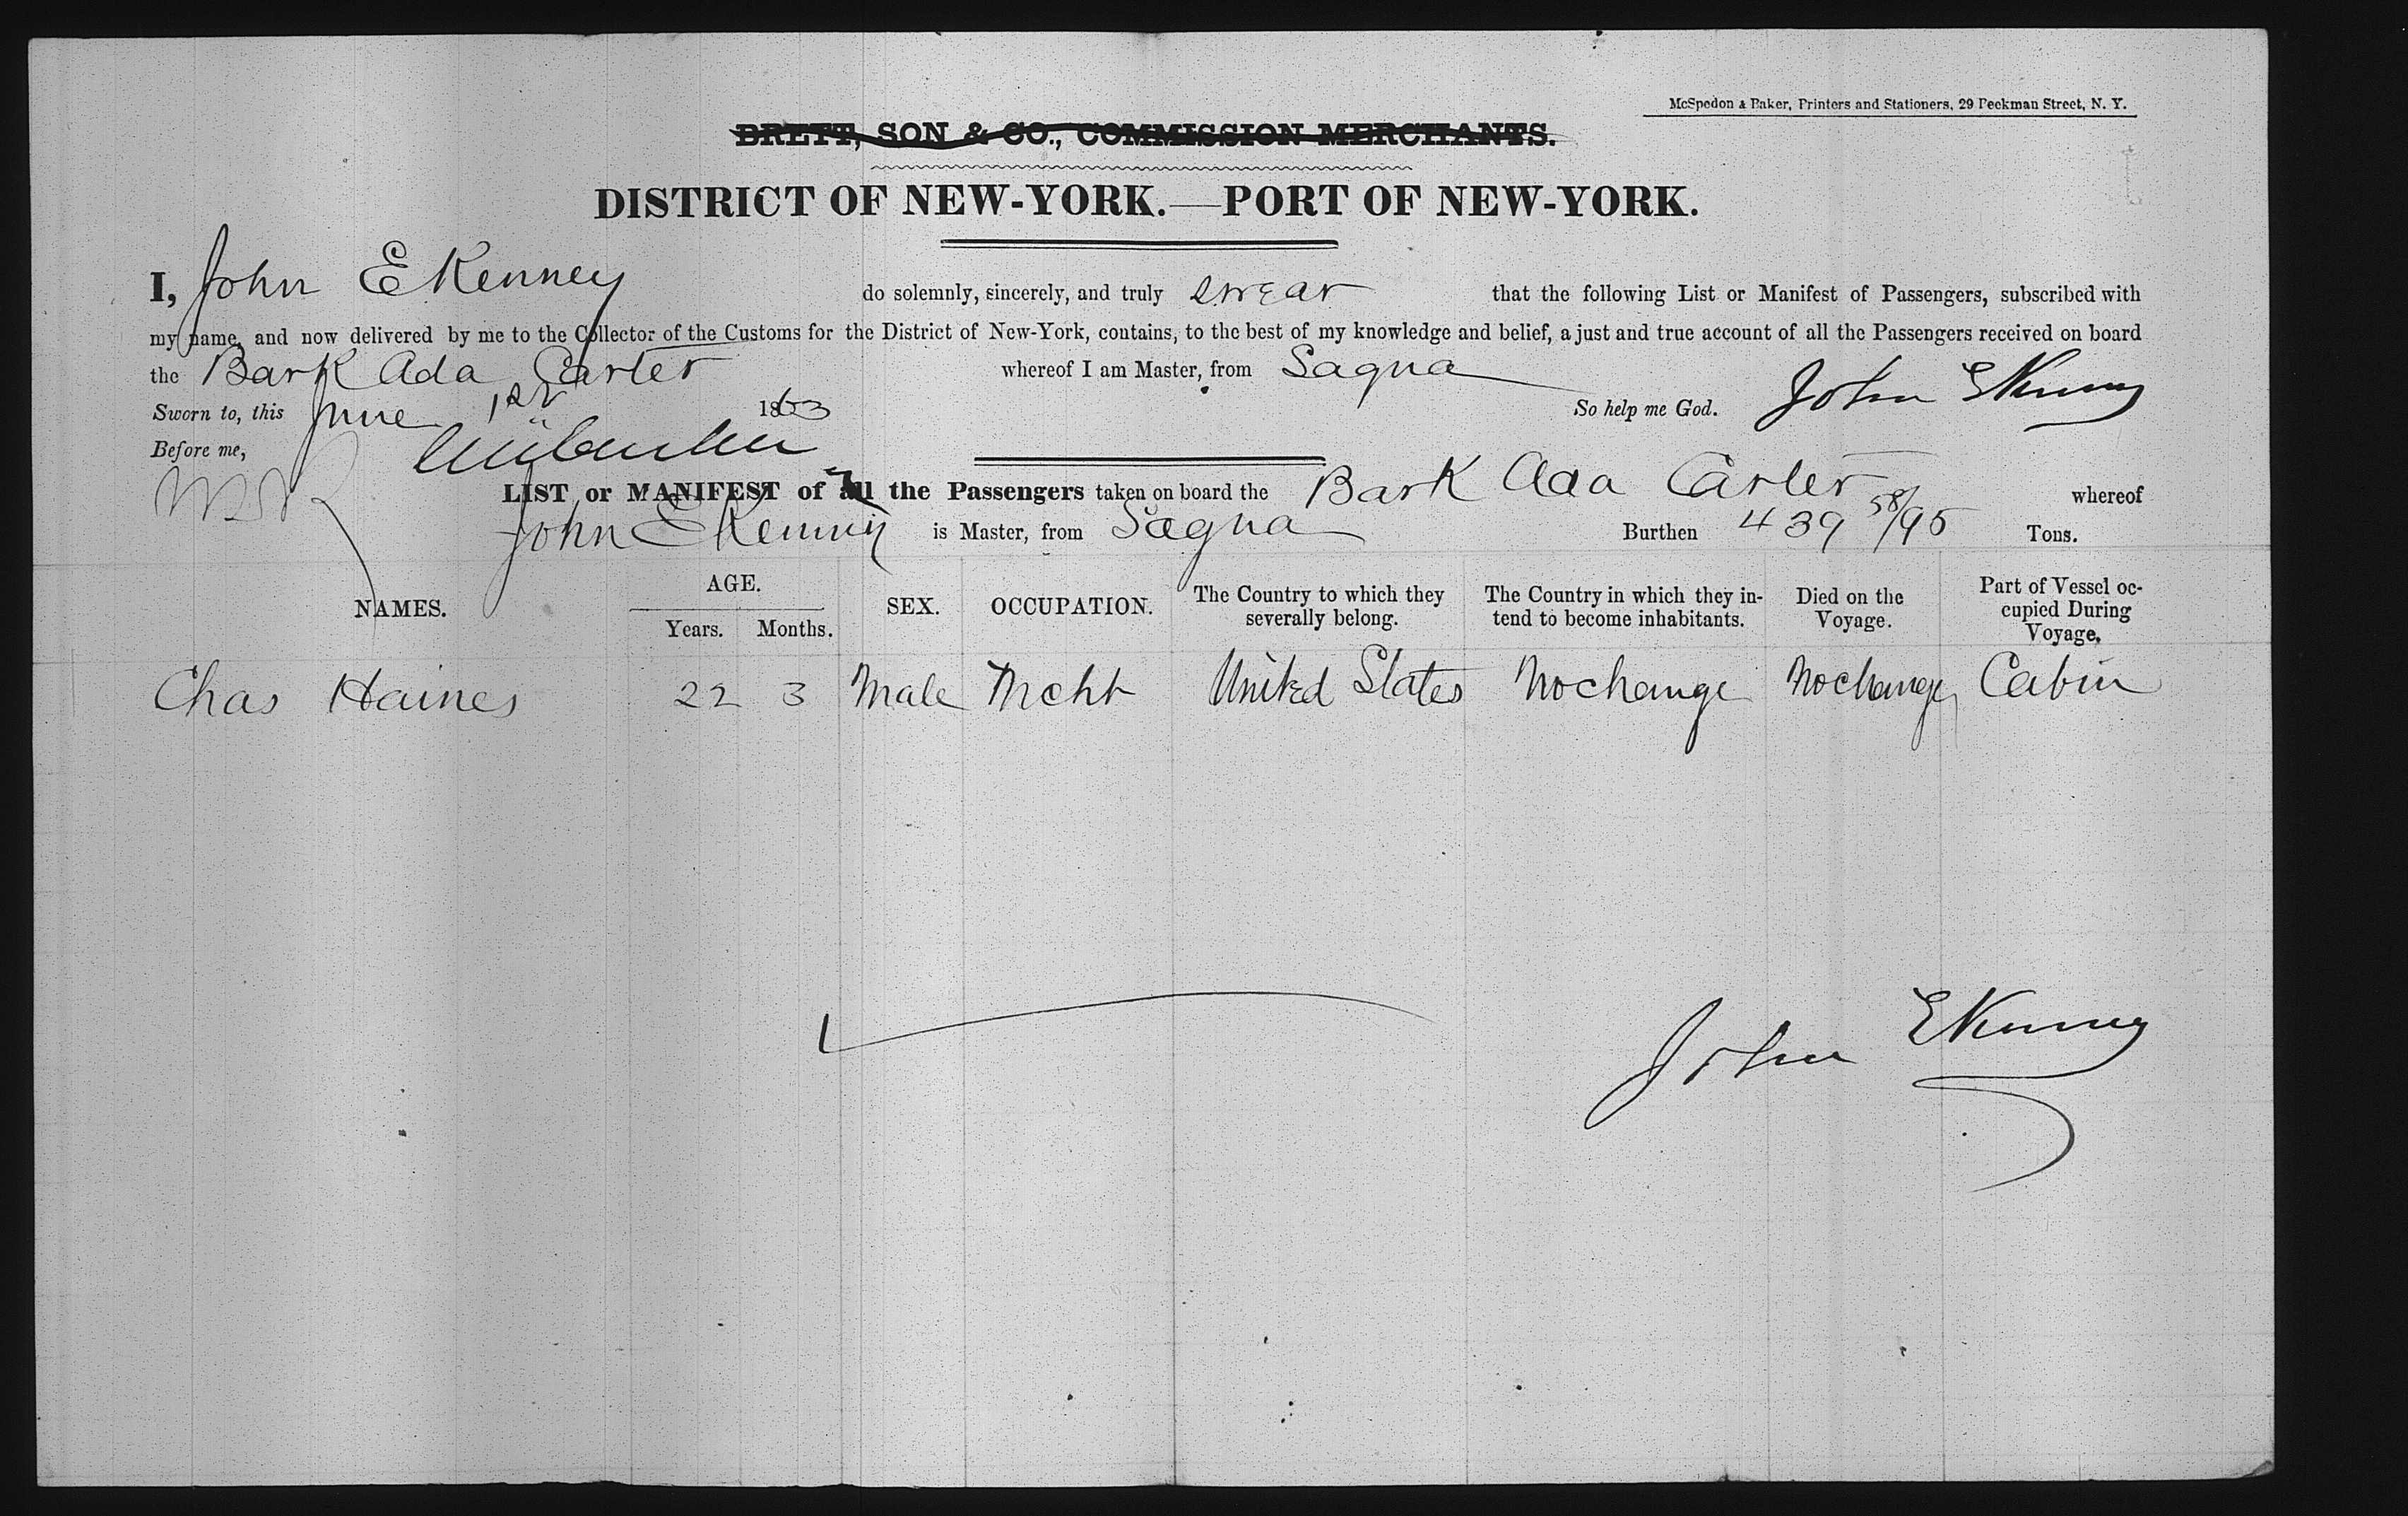 McSpedon & Baker, Printers and Stationers, 29 Beekman Street, N. Y.
BRETT, SON & CO., COMMISSION MERCHANTS.
DISTRICT OF NEW-YORK.—PORT OF NEW-YORK.
I, John E Kenney do solemnly, sincerely, and truly swear that the following List or Manifest of Passengers, subscribed with
my name, and now delivered by me to the Collector of the Customs for the District of New-York, contains, to the best of my knowledge and belief, a just and true account of all the Passengers received on board
the Bark Ada Carter whereof I am Master, from Sagua
Sworn to, this June 1st 1863 So help me God. John E Kenney
Before me,
LIST or MANIFEST of all the Passengers taken on board the Bark Ada Carter whereof
John E Kenney is Master, from Sagua Burthen 439 58/95 Tons.
NAMES. AGE. Years. Months. SEX. OCCUPATION. The Country to which they severally belong. The Country in which they intend to become inhabitants. Died on the Voyage. Part of Vessel occupied During Voyage.
Chas Haines 22 3 Male Mcht United States No change No change Cabin
John E Kenney